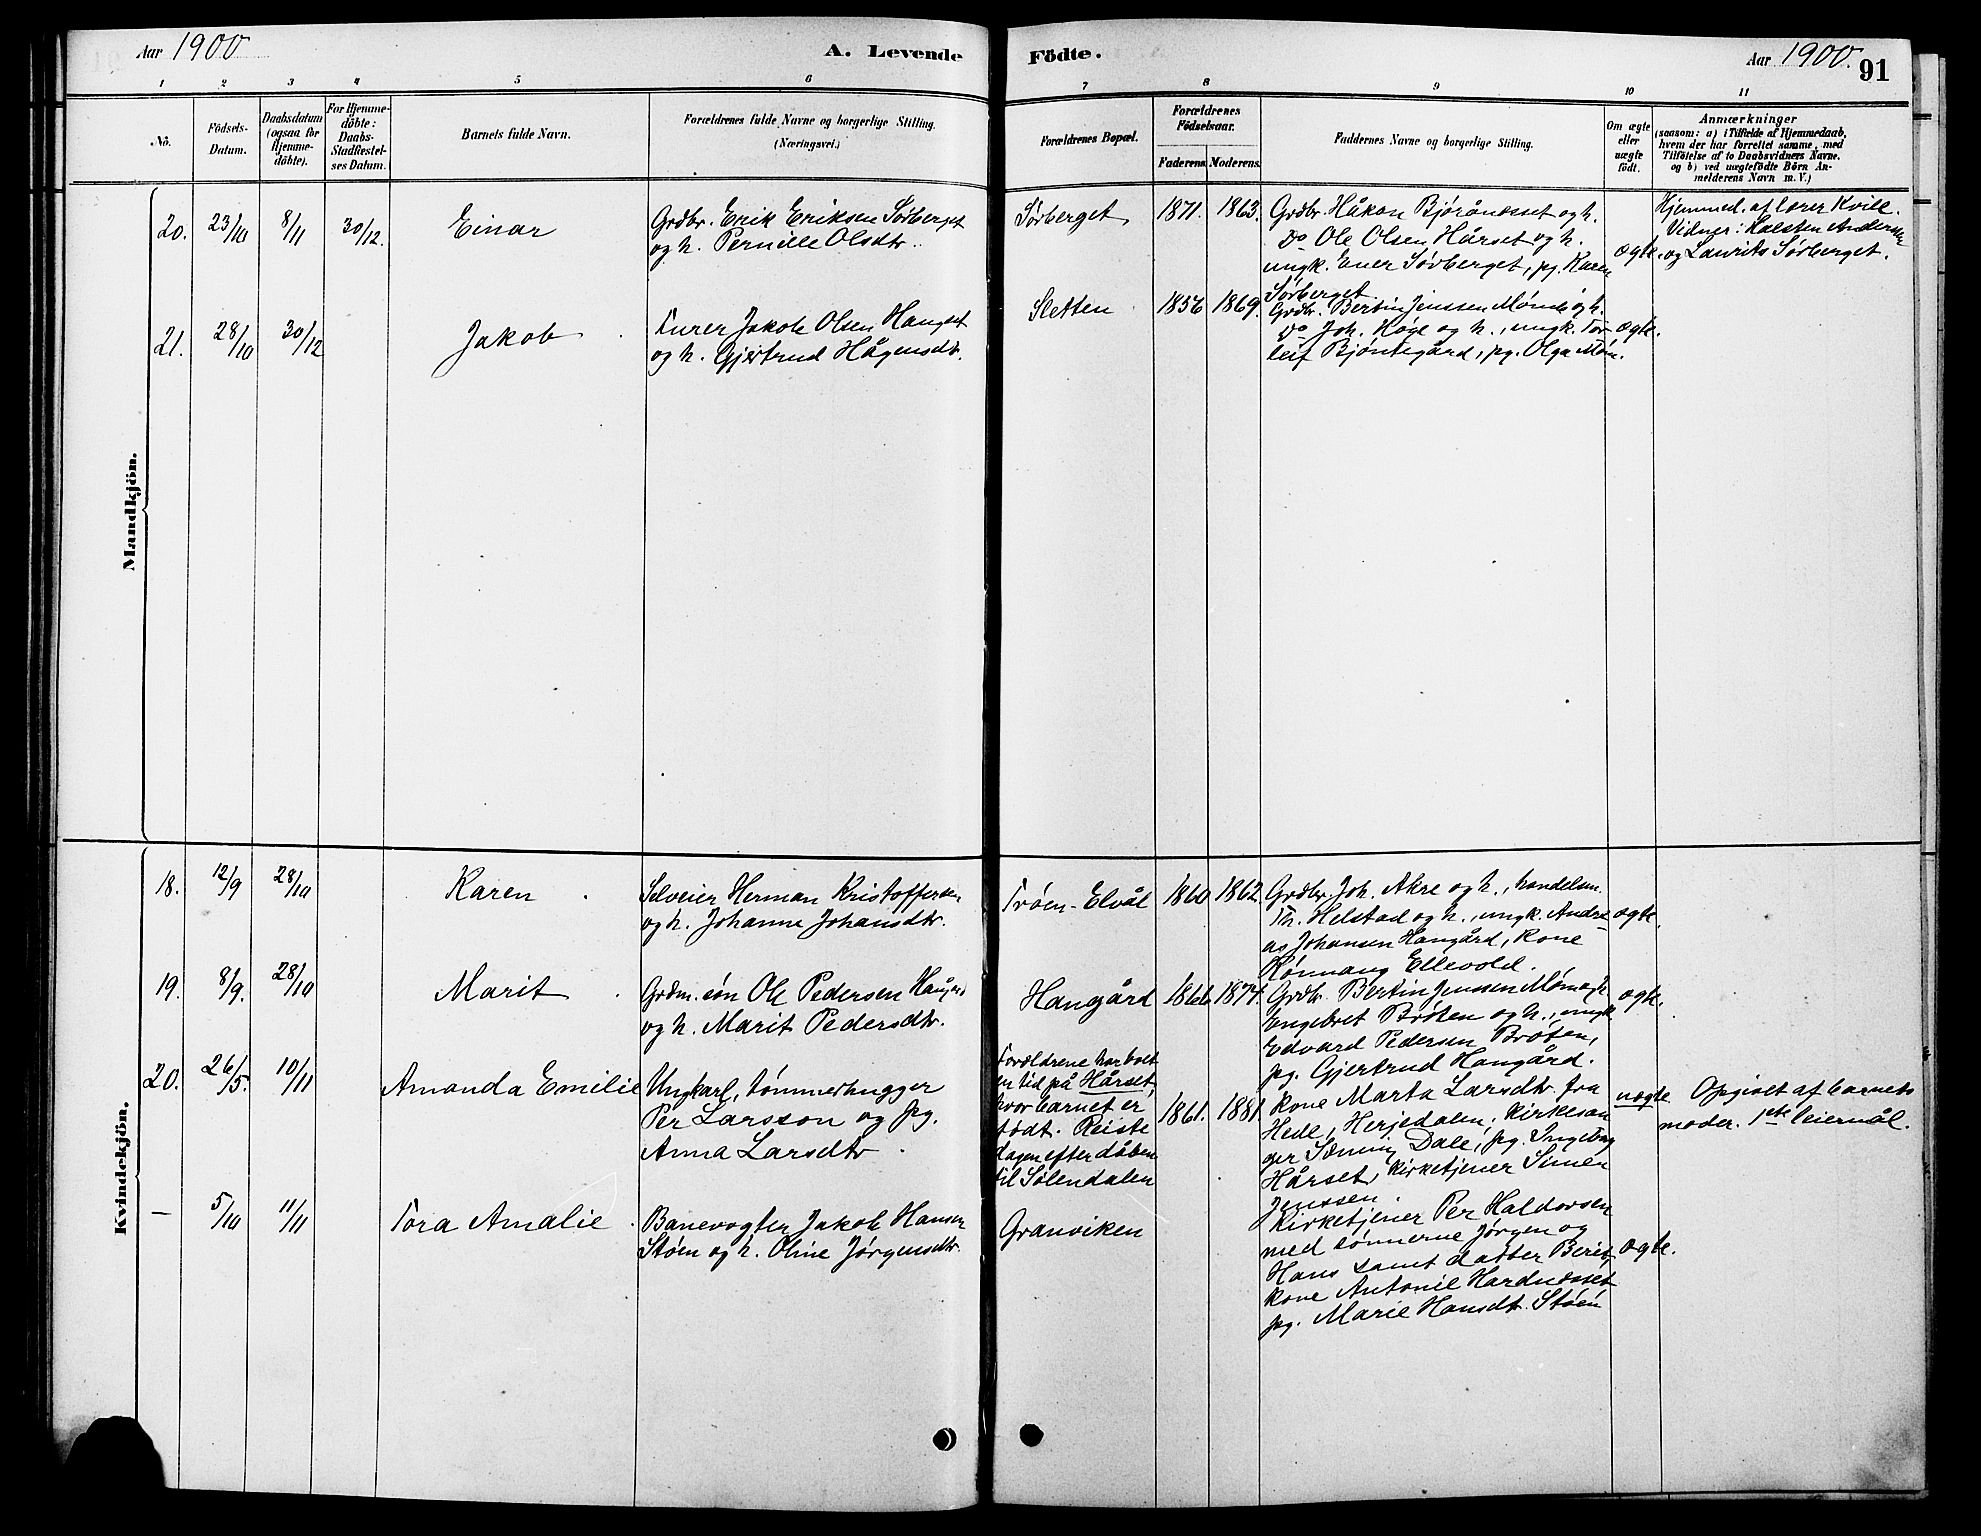 Aar 1900
A. Levende
Födte.
Aar 1900.
91
1 2 3 4 5 6 7 8 9 10 11
No.
Födsels-
Datum.
Daabsdatum
(ogsaa for
Hjemme-
döbte).
For Hjemme-
döbte:
Daabs-
Stadfæstel-
ses Datum.
Barnets fulde Navn.
Forældrenes fulde Navne og borgerlige Stilling.
(Næringsvei.)
Forældrenes Bopæl.
Forældrenes
Födselsaar.
Faderens.
Moderens.
Faddernes Navne og borgerlige Stilling.
Om ægte
eller
uægte
födt.
Anmærkninger
(saasom: a) i Tilfælde af Hjemmedaab,
hvem der har forrettet samme, med
Tilföielse af to Daabsvidners Navne.
og b) ved uægtefödte Börn An-
melderens Navn m. V.)
Mandkjön.
20. 23/10 8/11 30/12. Einar
Grdbr. Erik Eriksen Sørberget
og h. Pernille Olsdtr.
Sørberget 1871. 1863.
Grdbr. Håkon Bjørånesset og h.
Do Ole Olsen Hårset og h.
ungk. Ener Sørberget, pg. Karen
Sørberget
ægte.
Hjemmed. af lærer Kvill.
Vidner: Halsten Andersen
og Laurits Sørberget.
21. 28/10 30/12 Jakob
Furer Jakob Olsen Hangset
og h. Gjertrud Hågensdtr.
Sletten 1856 1869.
Grdbr. Bertin Jenssen Momb og h.
Do Joh. Høye og h., ungk. Tor-
leif Bjøntegård, pg. Olga Møm.
ægte.
Kvindekjön.
18. 12/9 28/10 Karen
Selveier Herman Kristoffersen
og h. Johanne Johansdtr.
Trøen-Elvål 1860 1862.
Grdbr. Joh. Akre og h., handelsm.
Th. Helstad og h., ungk. Andre-
as Johansen Hangård, kone
Rønnaug Ellevold.
ægte.
19. 8/9. 28/10 Marit
Grdm. søn Ole Pedersen Hangård
og h. Marit Pedersdtr.
Hangård 1866 1874.
Grdbr. Bertin Jenssen Møm og h.
Engebret Bröten og h., ungk
Edvard Pedersen Bröten,
pg. Gjertrud Hangård.
ægte.
20. 26/5. 10/11 Amanda Emilie
Ungkarl, tømmerhugger
Per Larsson og pg.
Anna Larsdtr.
Forældrene har boet
en tid på Hårset,
hvor barnet er
født. Reiste
dagen efter dåben
til Sølendalen
1861. 1881.
Kone Marta Larsdtr. fra
Hede, Herjedalen, Kirkesan
ger Sæming Dale, pg. Ingeborg
Hårset, kirketjener Simen
Jenssen.
uægte
Opgivet af barnets
moder. 1ste leiermål.
— 5/10 11/11 Tora Amalie
Banevogter Jakob Hansen
Støen og h. Oline Jørgensdtr.
Granviken
Kirketjener Per Haldorsen
med sønnerne Jørgen og
Hans samt datter Berit,
kone Antonie Hardnesset
pg. Marie Hansdtr. Støen
ægte.